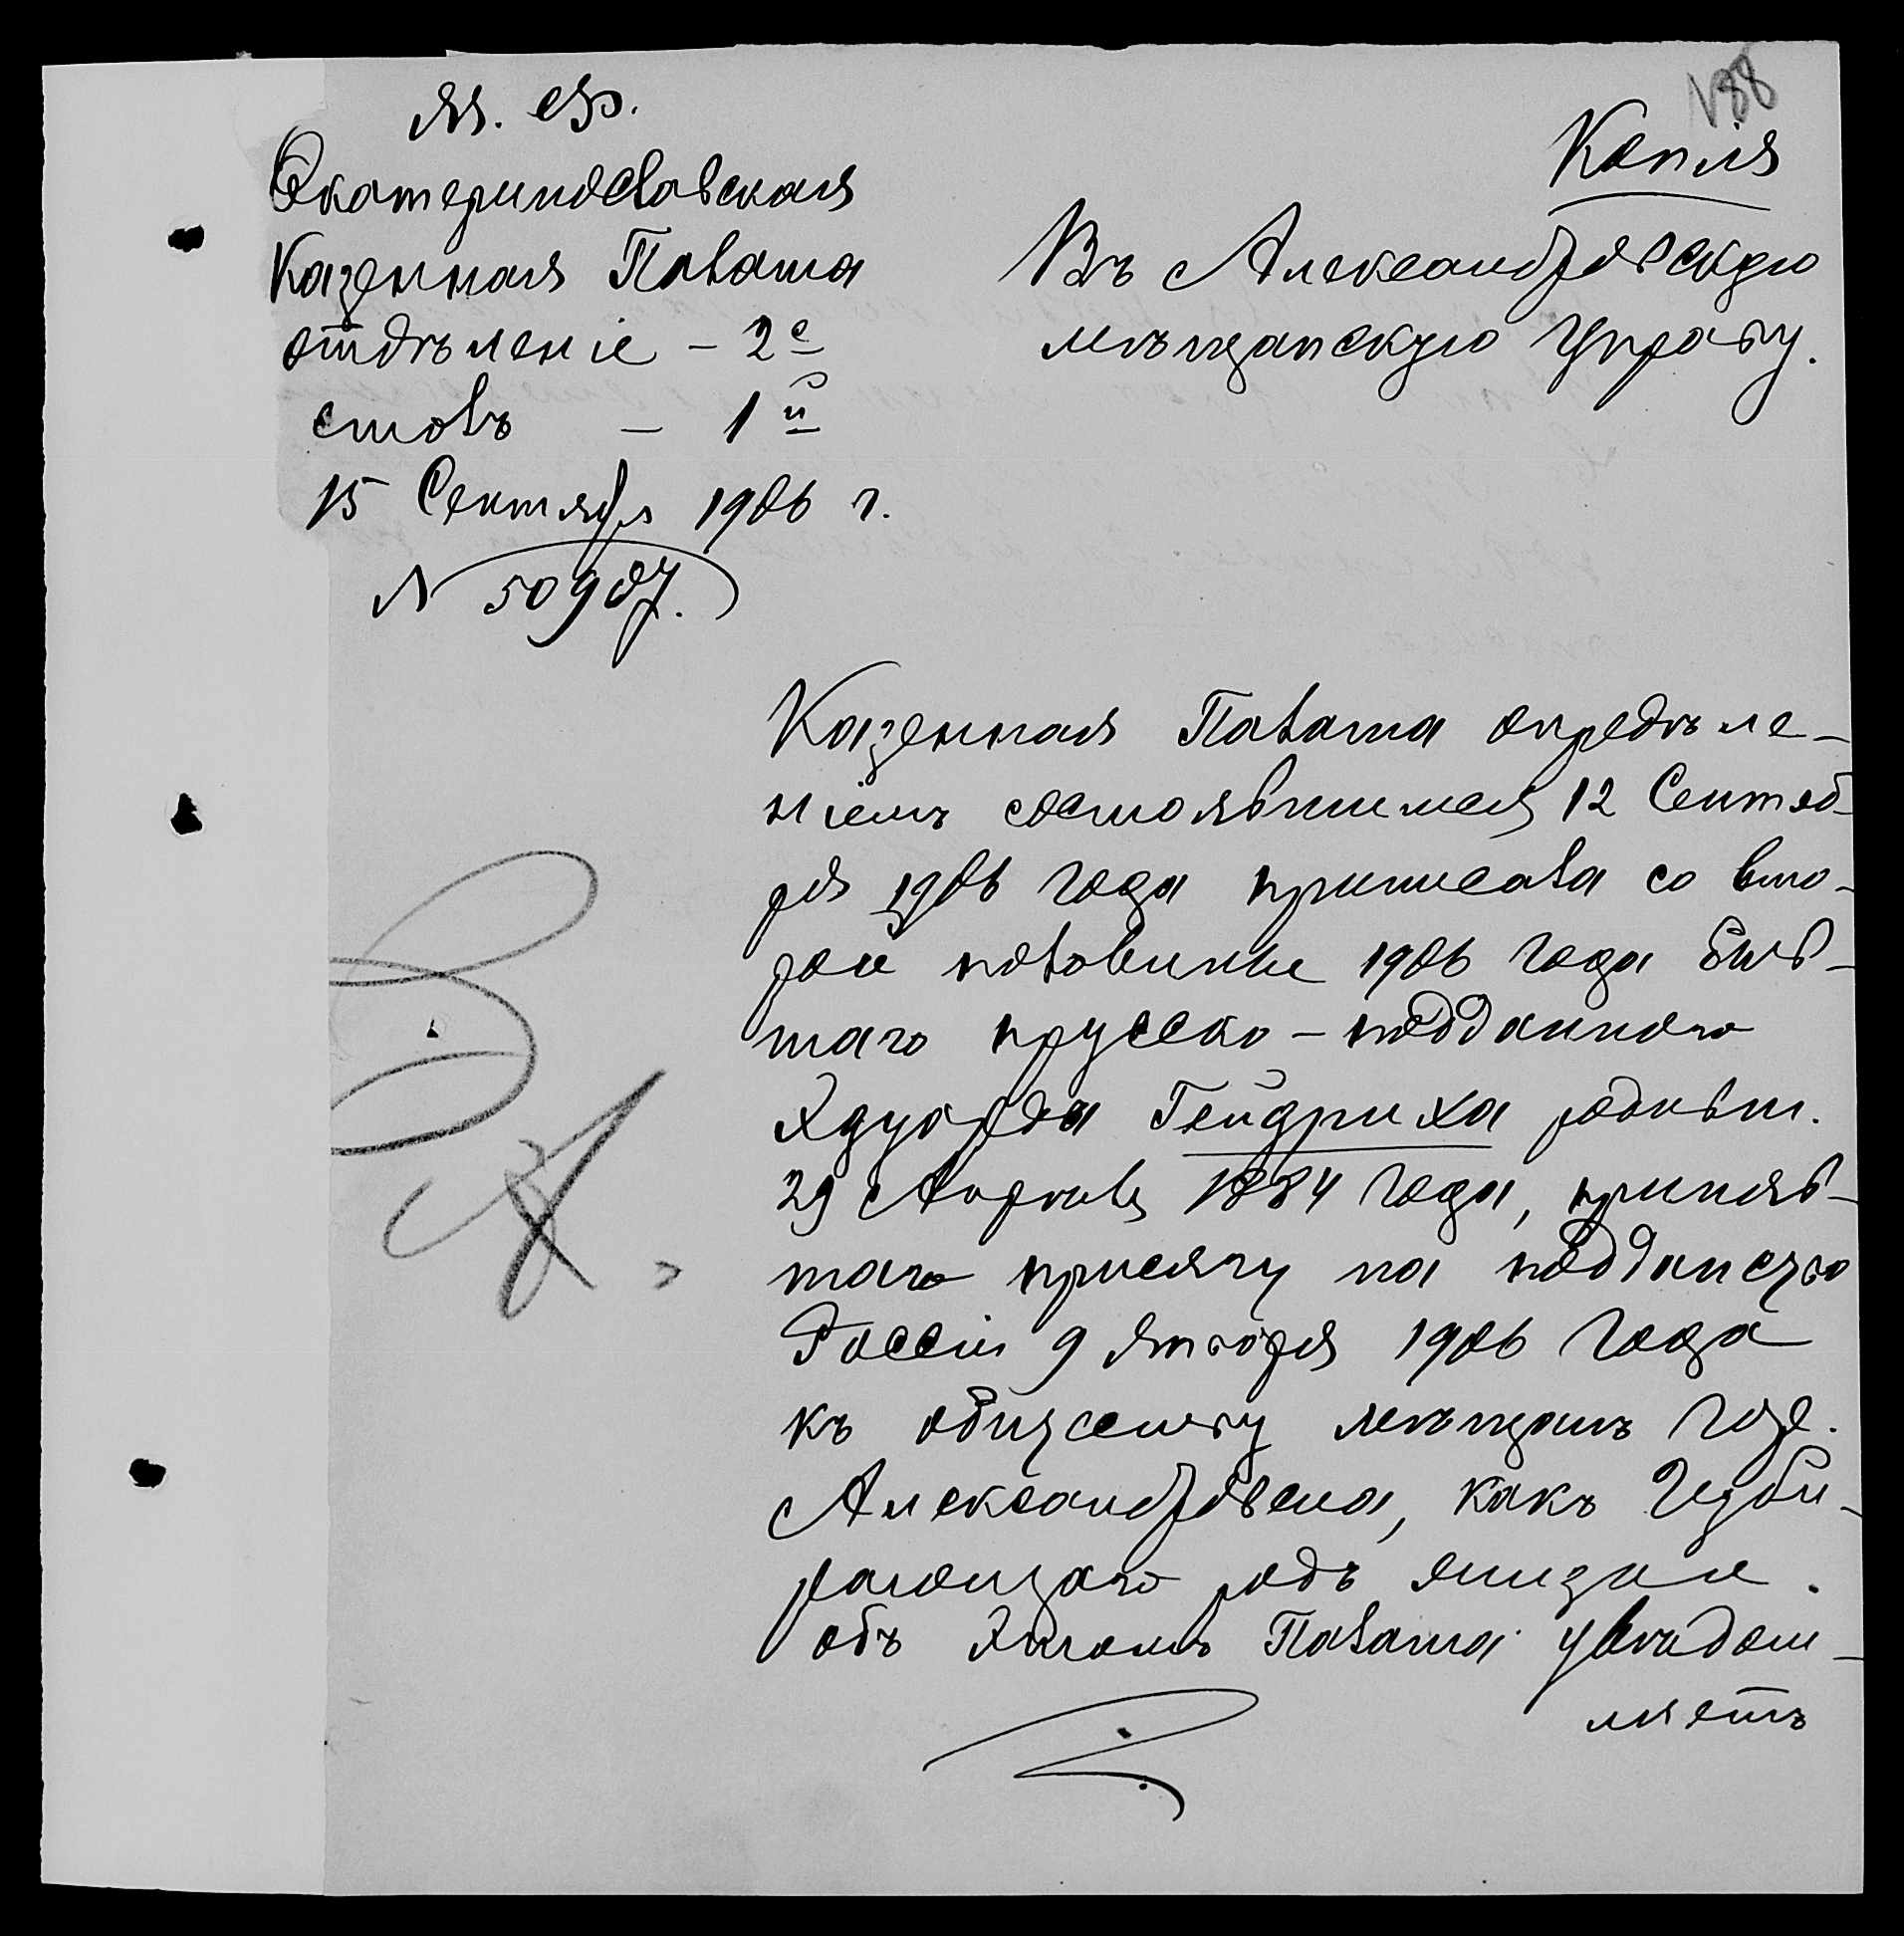 188
Копія
М. Ф.
Екатеринославская
Казенная Палата
отдѣленіе – 2е
столъ – 1й
15 Сентября 1906 г.
N 50907.
Въ Александровскую
мѣщанскую Управу.
Казенная Палата опредѣле-
ніемъ состоявшимся 12 Сентяб-
ря 1906 года причислала со вто-
рой половины 1906 года быв-
шаго прусско-подданного
Эдуарда Гейдриха родивш.
29 Апрѣля 1884 года, приняв-
шаго присягу на подданство
Россіи 9 Января 1906 года
къ обществу мѣщанъ гор.
Александровска, какъ Избирающаго родъ жизни.
объ этомъ Палата увѣдом-
ляетъ